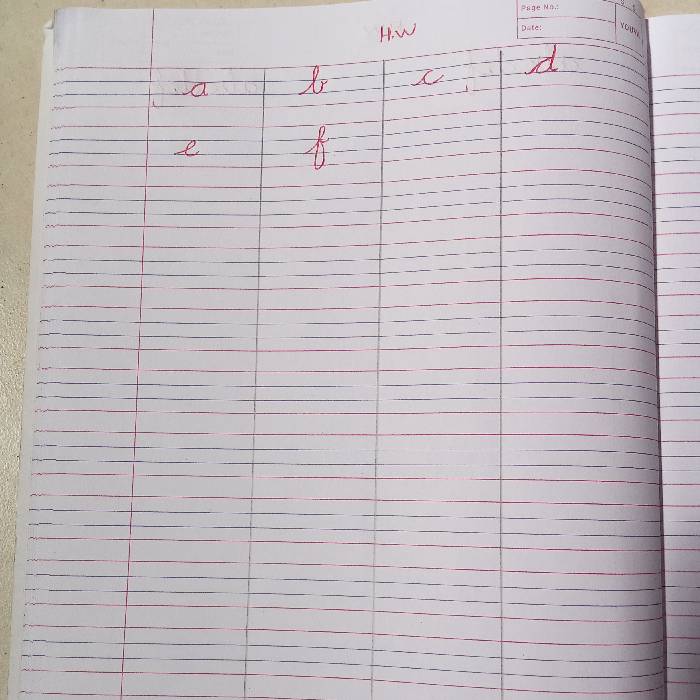 Page No.:
Date:
YOUVA
H.W
a b c d
e f